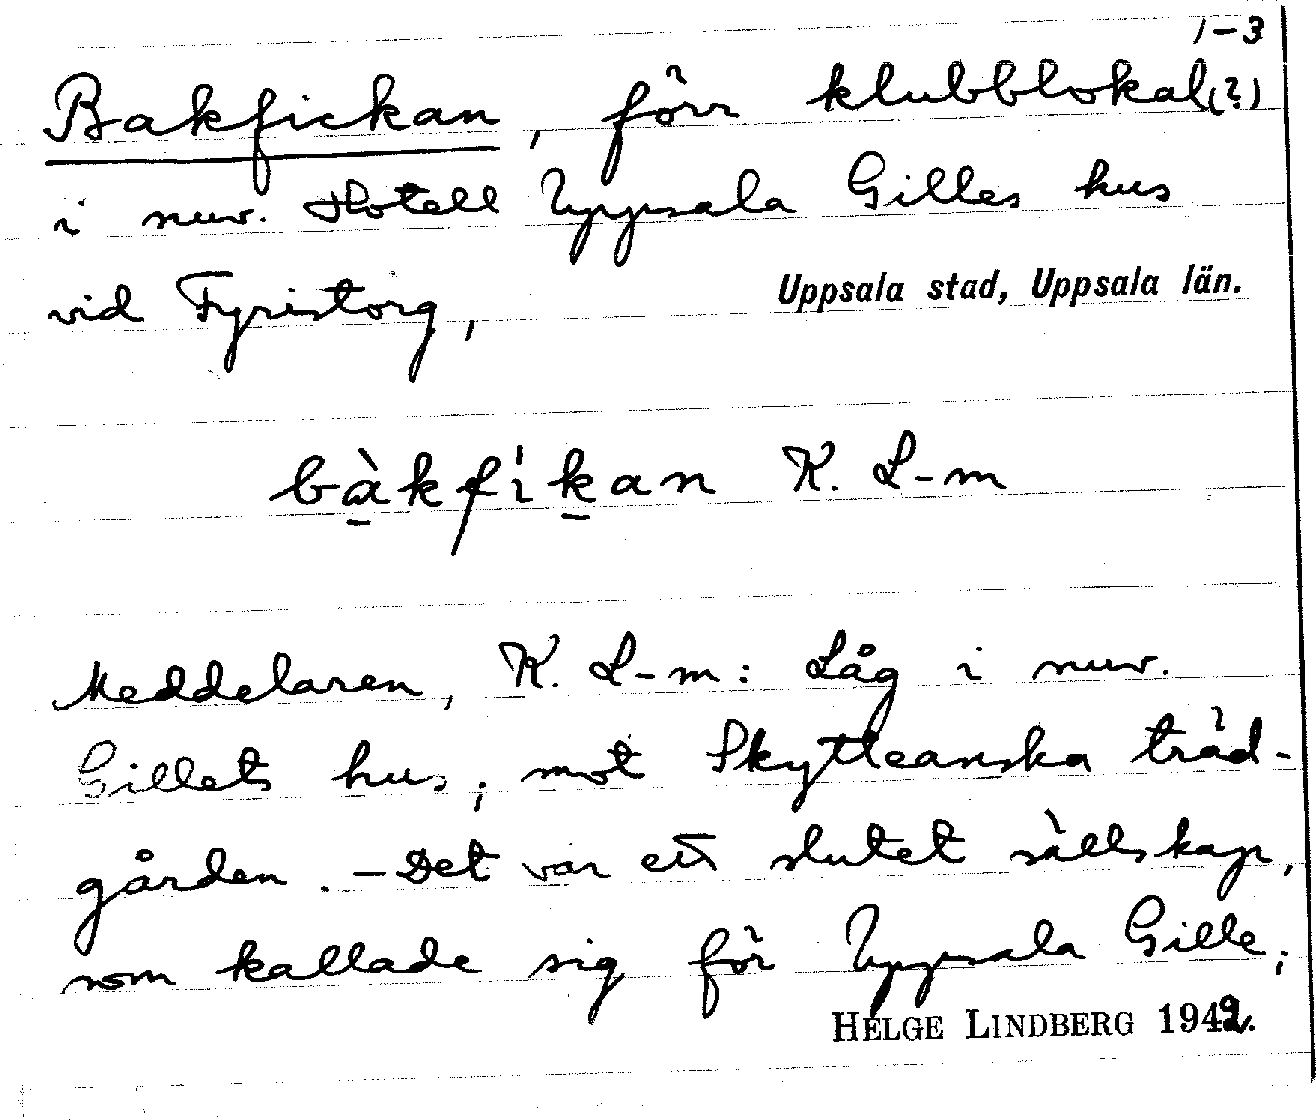 1-3
Bakfickan, förr klubblokal(?)
i nuv. Hotell Uppsala Gilles hus
vid Fyristorg,
Uppsala stad, Uppsala län.
bàkfikan K. L-m
Meddelaren, K. L-m: Låg i nuv.
Gillets hus; mot Skytteanska träd-
gården. - Det var ett slutet sällskap,
som kallade sig för Uppsala Gille;
HELGE LINDBERG 1949.